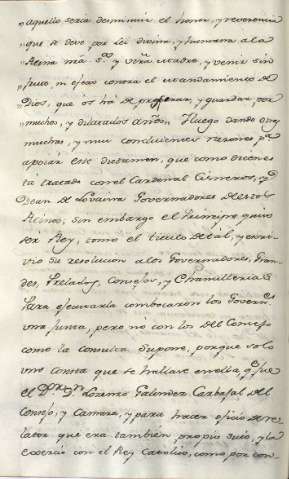 aquello seria desminuir el honor, y reverencia
que se deve por Lei divina, y humana a la
Reina mia S.ra y vra Madre, y venir sin
fruto, ni efeto contra el mandamiento de
Dios, que os ha de prosperar, y guardar por
muchos, y dilatados años. Y luego dando
muchas, y mui concluientes razones p.a
apoiar este dictamen, que como decenes
ta tratado con el Cardenal Cisneros, y
Dean de Lovaina Governadores destos
Reinos, sin embargo el Principe quiso
ser Rey, como el titulo de tal, y escri
vio su resolucion a los Governadores, Gran
des, Prelados, Consejos, y Chancillerias
Para ejecutarla combocaron los Govern.es
una Junta, pero no con los del Consejo
como la consulta supone, porque solo
uno consta que se hallase en ella, q.e fue
el D.or D.n Lorenzo Galindez Carbajal del
Consejo, y Camara, y para hacer oficio de re
lator que era tambien propio suio, y la
exercio con el Rey Catolico, como por con